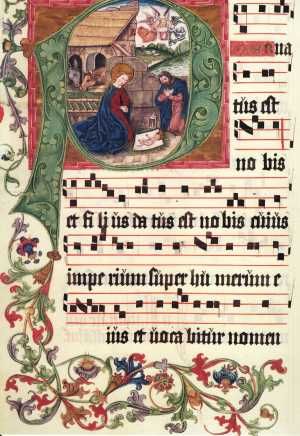 P na
tus est
no bis
et fi li us da tus est no bis cuius
impe rium super hu merum e
ius et voca bitur nomen